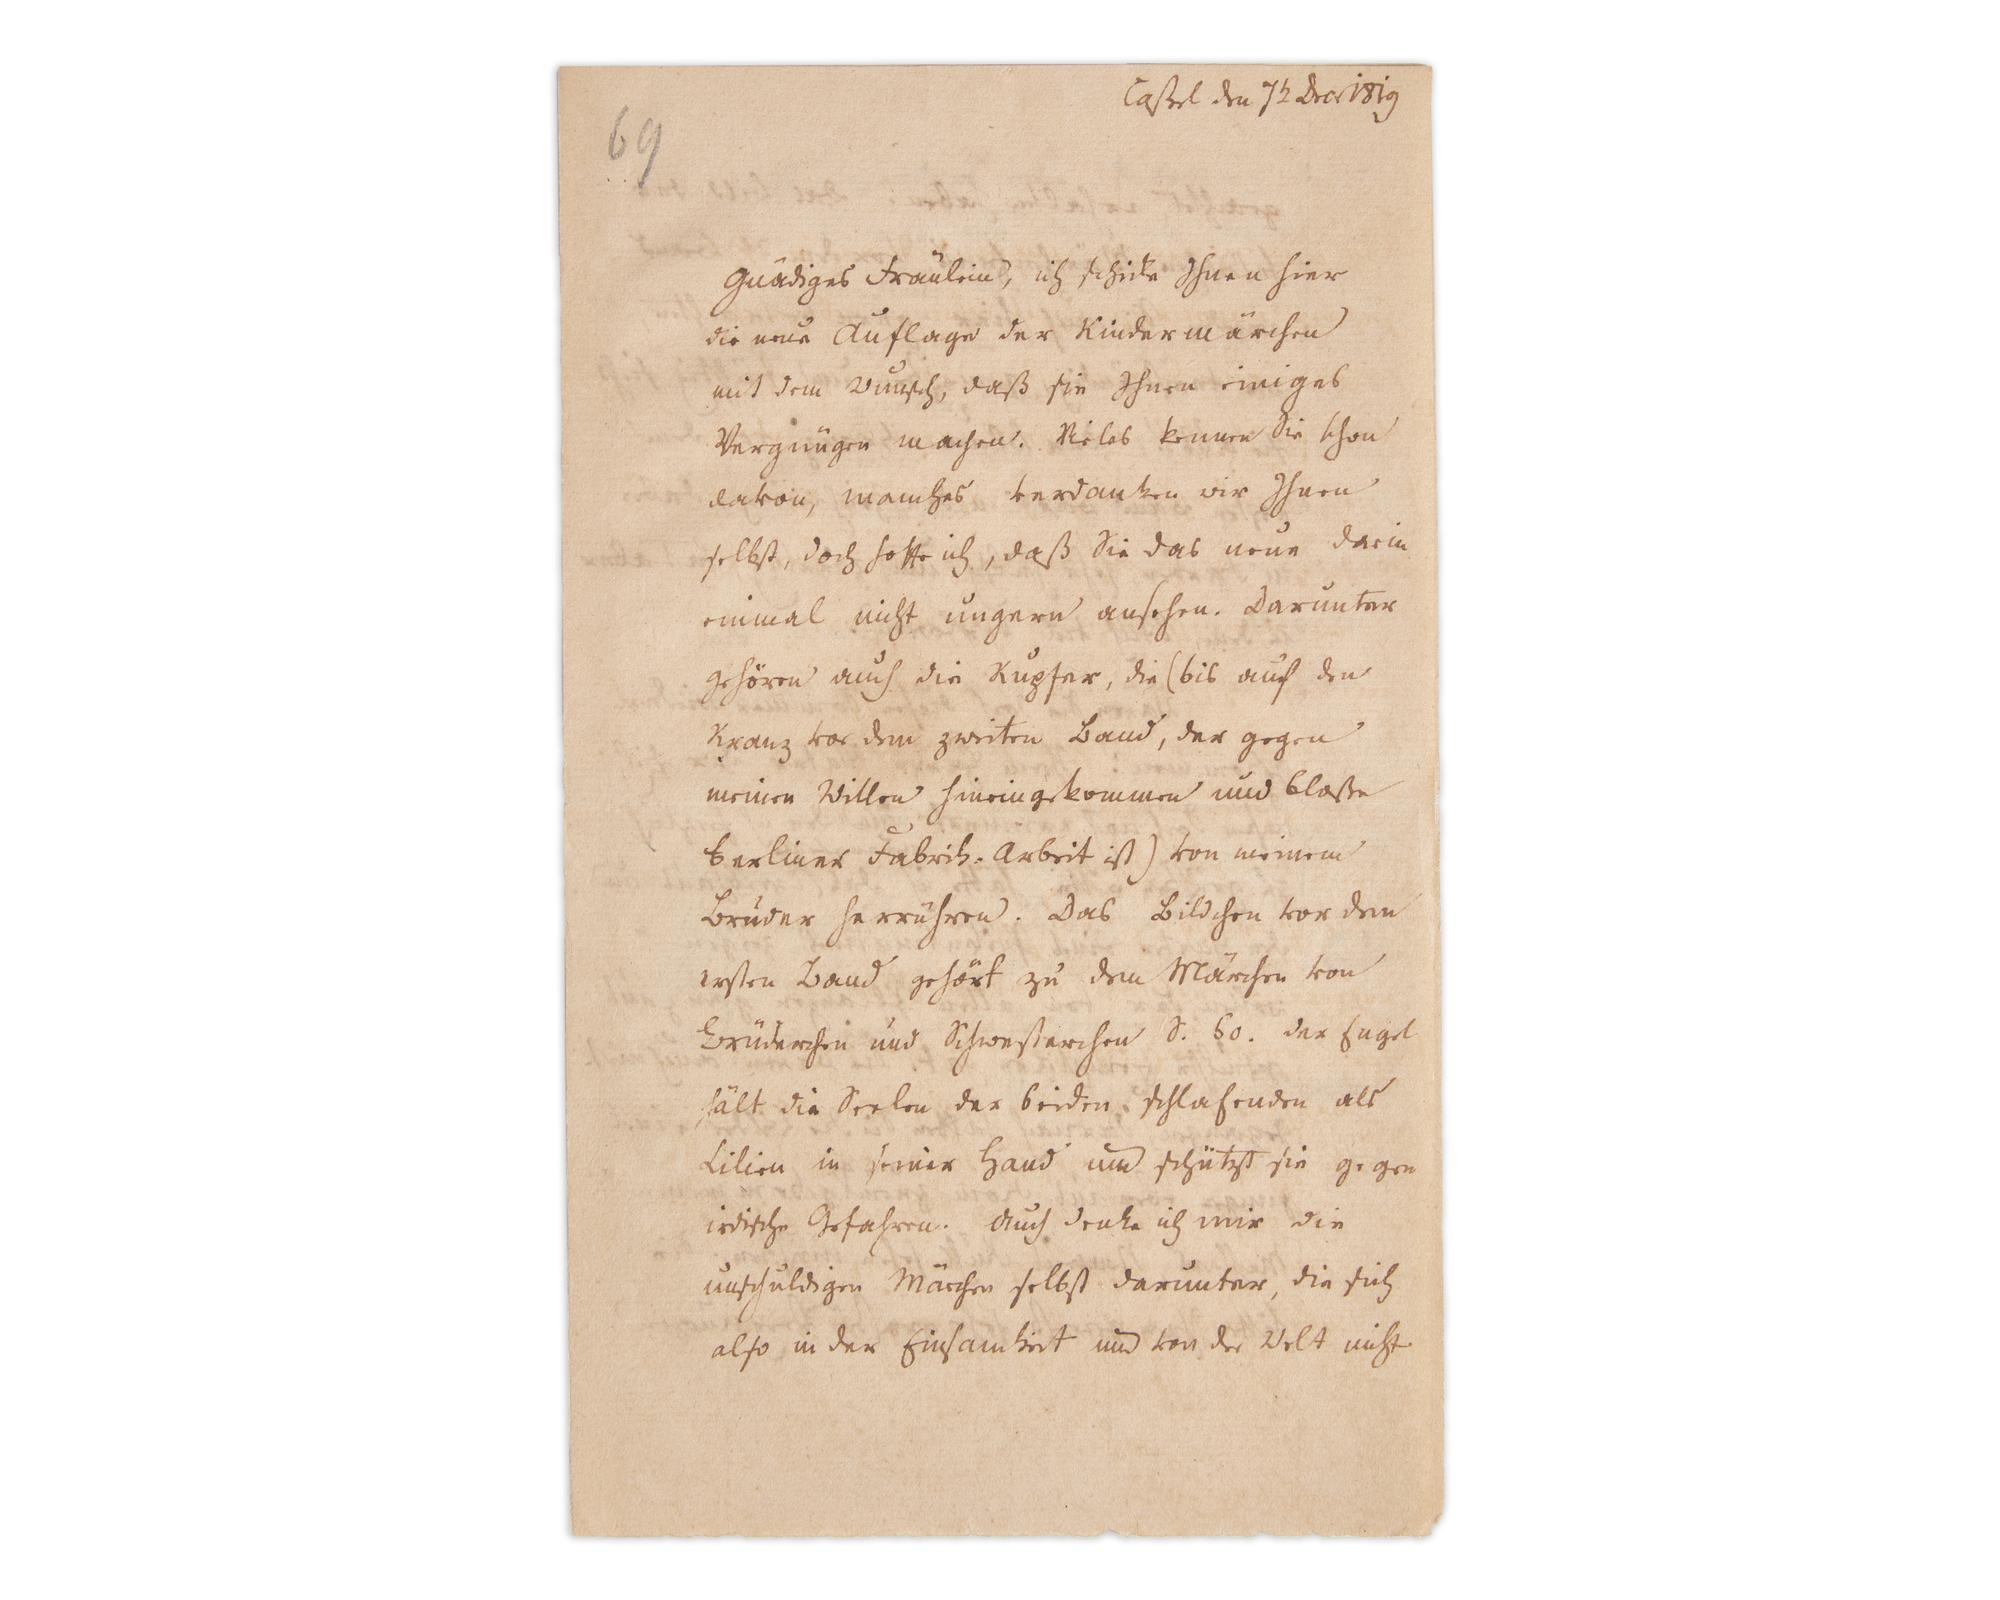 Cassel den 7t Decr 1819
69
Gnädiges Fräulein, ich schicke Ihnen hier
die neue Auflage der Kindermärchen
mit dem Wunsch, daß sie Ihnen einiges
Vergnügen machen. Vieles kennen Sie schon
davon, manches verdanken wir Ihnen
selbst, doch hoffe ich, daß Sie das neue darin
einmal nicht ungern ansehen. Darunter
gehören auch die Kupfer, die (bis auf den
Kranz vor dem zweiten Band, der gegen
meinen Willen hineingekommen und blosse
berliner Fabrik-Arbeit ist) von meinem
Bruder herrühren. Das Bildchen vor dem
ersten Band gehört zu dem Märchen von
Brüderchen und Schwesterchen S. 60. der Engel
hält die Seelen der beiden schlafenden als
Lilien in seiner Hand und schützt sie gegen
irdische Gefahren. Auch denke ich mir die
unschuldigen Märchen selbst darunter, die sich
also in der Einsamkeit und von der Welt nicht